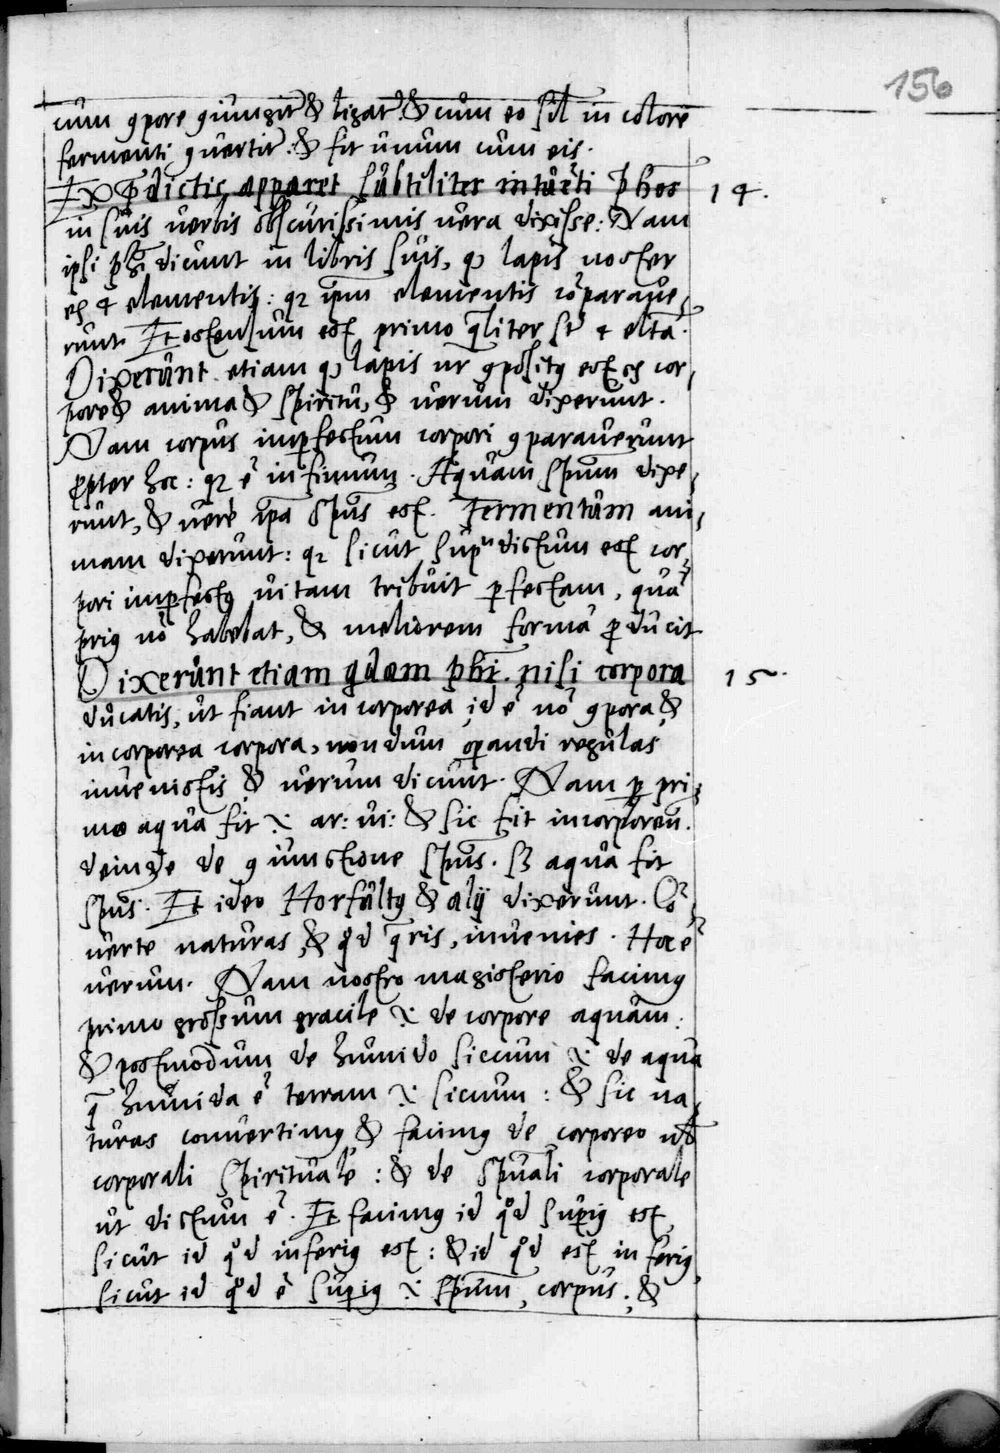 156
cum ꝯpore ꝯiungit᷑ & ligat᷑ & cum eo sil̃ in colore
fermenti ꝯvertit᷑. & fit unum cum eis.
Ex p̃dictis apparet subtiliter intue᷑ti phos̃ 14.
in suis verbis obscurissimis vera dixisse: Nam
ipsi phi̅ dicunt in libris suis, qꝫ lapis noster
ex 4 elementis: qꝛ ipm̅ elementis cõparave,
runt. Et ostensum est primo qͣliter st̃ 4 elta̅.
Dixerunt etiam qꝫ lapis nr̅ ꝯpositꝰ est ex cor,
pore & anima & spiritu, & verum dixerunt.
Nam corpus imꝑfectum corpori ꝯparaverunt
ꝓpter hoc: qꝛ ẽ infimum. Aquam spum̅ dixe,
runt, & vere ipa̅ spus̅ est. Fermentum ani,
mam dixerunt: qꝛ sicut sup͛ dictum est cor,
pori imꝑfectꝰ vitam tribuit ꝑfectam, quã
priꝰ nõ habebat, & meliorem formã ꝓducit
Dixerunt etiam qdam phi̅. nisi corpora 15.
ducatis, ut fiant incorporea id ẽ nõ ꝯpora &
incorporea corpora, nondum oꝑandi regulas
invenistis & verum dicunt. Nam ꝑ pri,
mo aqua fit .i. ar: vi: & sic fit incorporeũ.
deinde de ꝯiunctione spus̅. sꝫ aqua fit
spus̅. Et ideo Horfultꝰ & alij dixerunt. Cõ,
verte naturas, & qd̊ q̃ris, invenies. Hoc ẽ
verum. Nam nostro magisterio facimꝰ
primo grossum gracile .i. de corpore aquam:
& postmodum de humido siccum .i. de aqua
q̃ humida ẽ terram .i. siccum: & sic na,
turas convertimꝰ & facimꝰ de corporeo
corporali spiritualẽ: & de spũali corporale
ut dictum ẽ. Et facimꝰ id qd̊ suꝑiꝰ est
sicut id qd̊ inferiꝰ est: & id qd̊ est inferiꝰ,
sicut id qd̊ ẽ suꝑiꝰ .i. spum̅, corpus, &